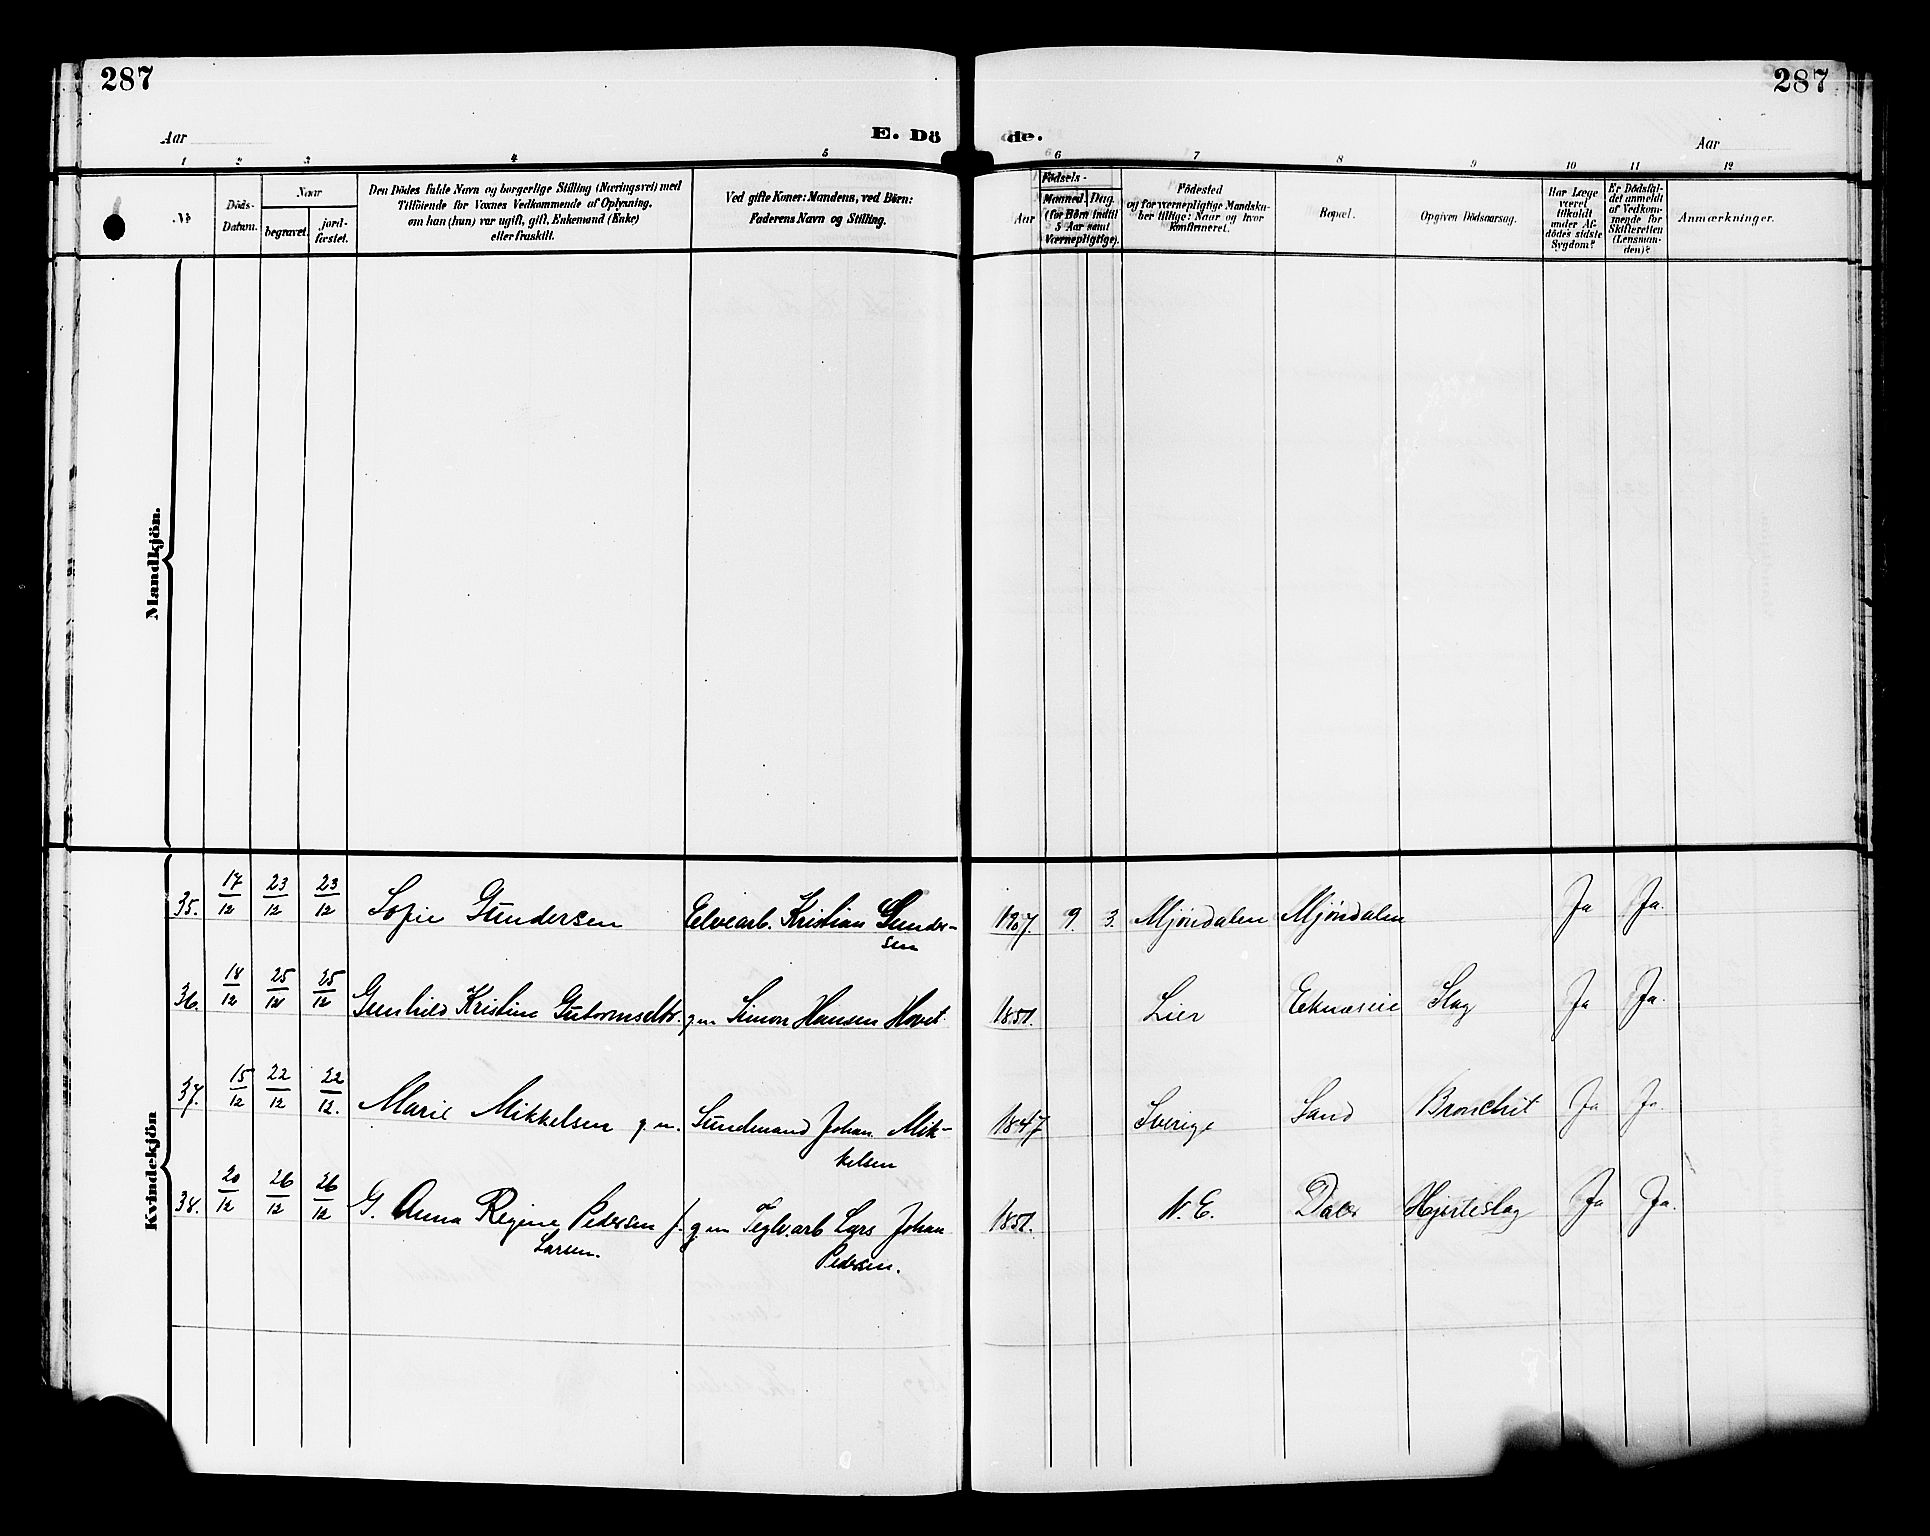 287
287
Aar
E. Dö
de.
Aar
1 2 3 4 5 6 7 8 9 10 11 12
№
Döds-
Datum.
Naar
begravet.
jord-
fæstet.
Den Dödes fulde Navn og borgerlige Stilling (Næringsvei) med
Tilföiende for Voxnes Vedkommende af Oplysning,
om han (hun) var ugift, gift, Enkemand (Enke)
eller fraskilt.
Ved gifte Koner: Mandens, ved Börn:
Faderens Navn og Stilling.
Födsels-
Aar
Maaned. Dag.
(for Börn indtil
5 Aar samt
Værnepligtige).
Födested
og for værnepligtige Mandska-
ber tillige: Naar og hvor
konfirmeret.
Bopæl.
Opgiven Dödsaarsag.
Har Læge
været
tilkaldt
under Af-
dödes sidste
Sygdom?
Er Dödsfal-
det anmeldt
af Vedkom-
mende for
Skifteretten
(Lensman-
den)?
Anmærkninger.
Mandkjön.
Kvindekjön
35. 17/12 23/12 23/12 Sofie Gundersen Elvearb. Kristian Gunder-
sen
1907. 9. 3. Mjöndalen Mjöndalen Ja Ja.
36. 18/12 25/12 25/12 Gunhild Kristine Gutormsdtr. g. m. Simon Hansen Hovet
1851. Lier Eknæseie Slag Ja Ja.
37. 15/12 22/12 22/12. Marie Mikkelsen g. m. Sundmand Johan Mik-
kelsen
1847 Sverige Sand Bronchit Ja Ja.
38. 20/12 26/12 26/12 G. Anna Regine Pedersen f. g. m Teglv.arb Lars Johan
Larsen.
Pedersen.
1851. N. E. Daler Hjerteslag Ja Ja.